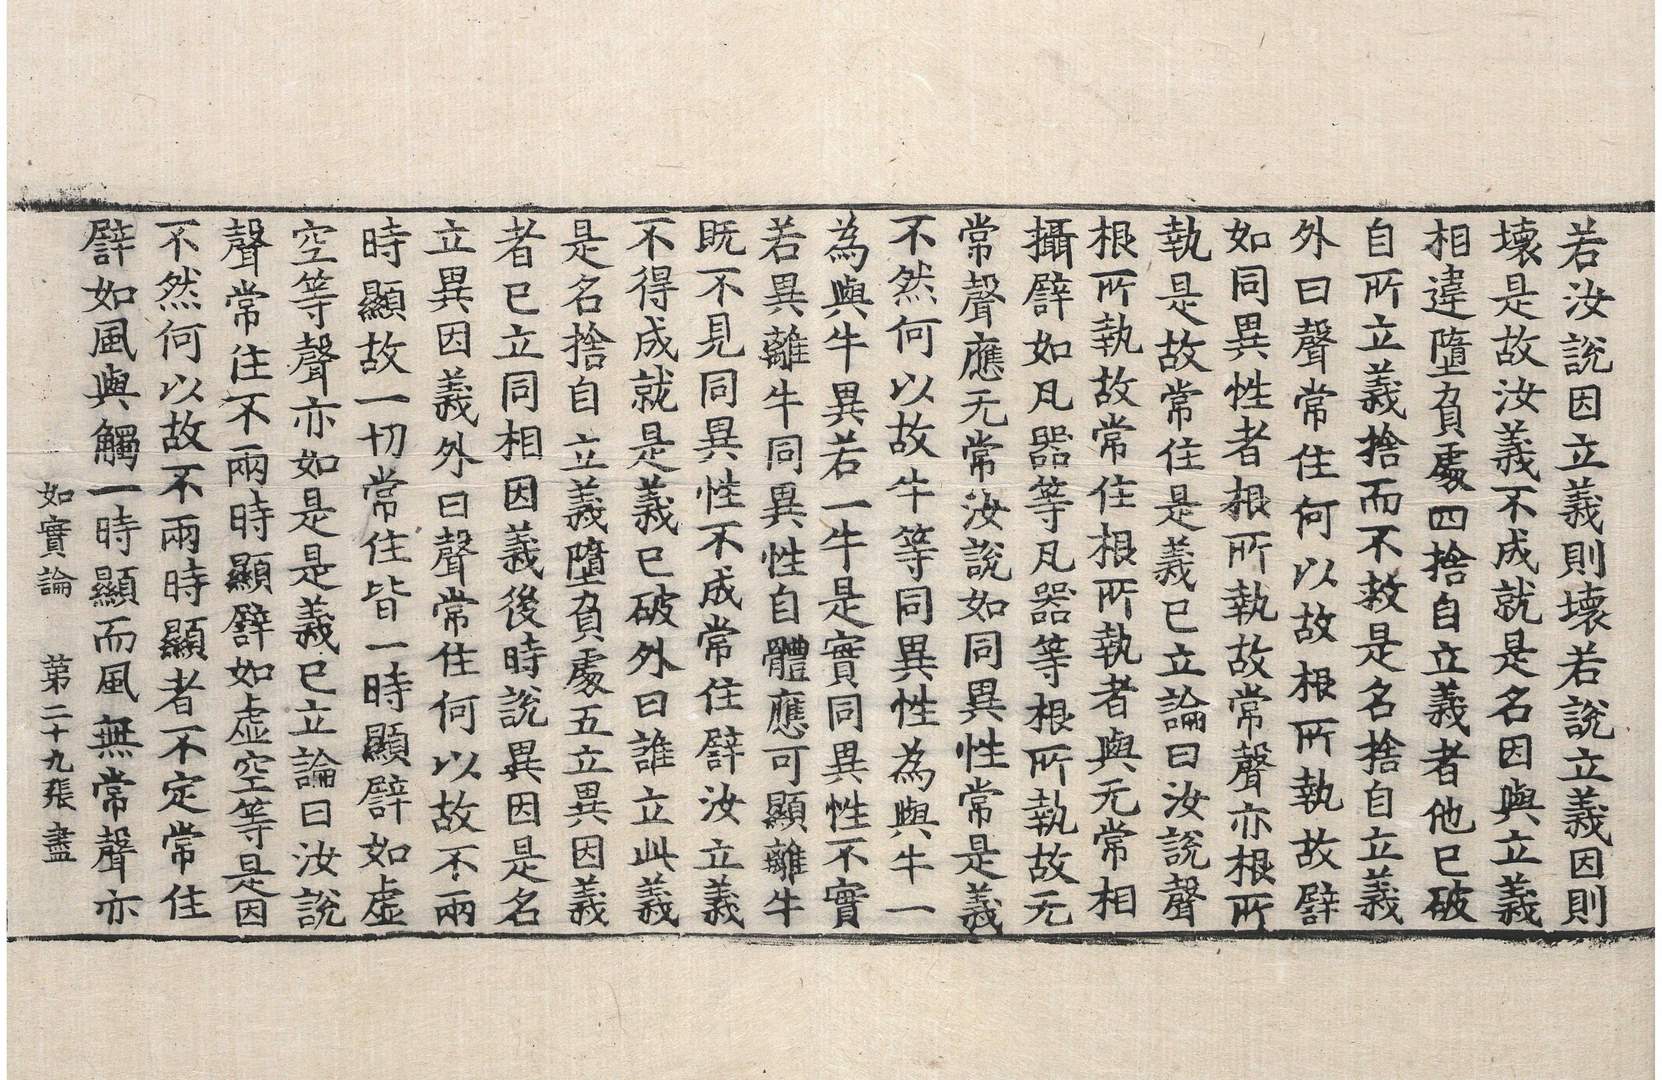 若汝說因立義則壞若說立義因則
壞是故汝義不成就是名因與立義
相違墮負處四捨自立義者他已破
自所立義捨而不救是名捨自立義
外曰聲常住何以故根所執故譬
如同異性者根所執故常聲亦根所
執是故常住是義已立論曰汝說聲
根所執故常住根所執者與无常相
攝譬如凡器等凡器等根所執故无
常聲應无常汝說如同異性常是義
不然何以故牛等同異性為與牛一
為與牛異若一牛是實同異性不實
若異離牛同異性自體應可顯離牛
既不見同異性不成常住譬汝立義
不得成就是義已破外曰誰立此義
是名捨自立義墮負處五立異因義
者已立同相因義後時說異因是名
立異因義外曰聲常住何以故不兩
時顯故一切常住皆一時顯譬如虛
空等聲亦如是是義已立論曰汝說
聲常住不兩時顯譬如虛空等是因
不然何以故不兩時顯者不定常住
譬如風與觸一時顯而風無常聲亦
如實論　第二十九張　盡